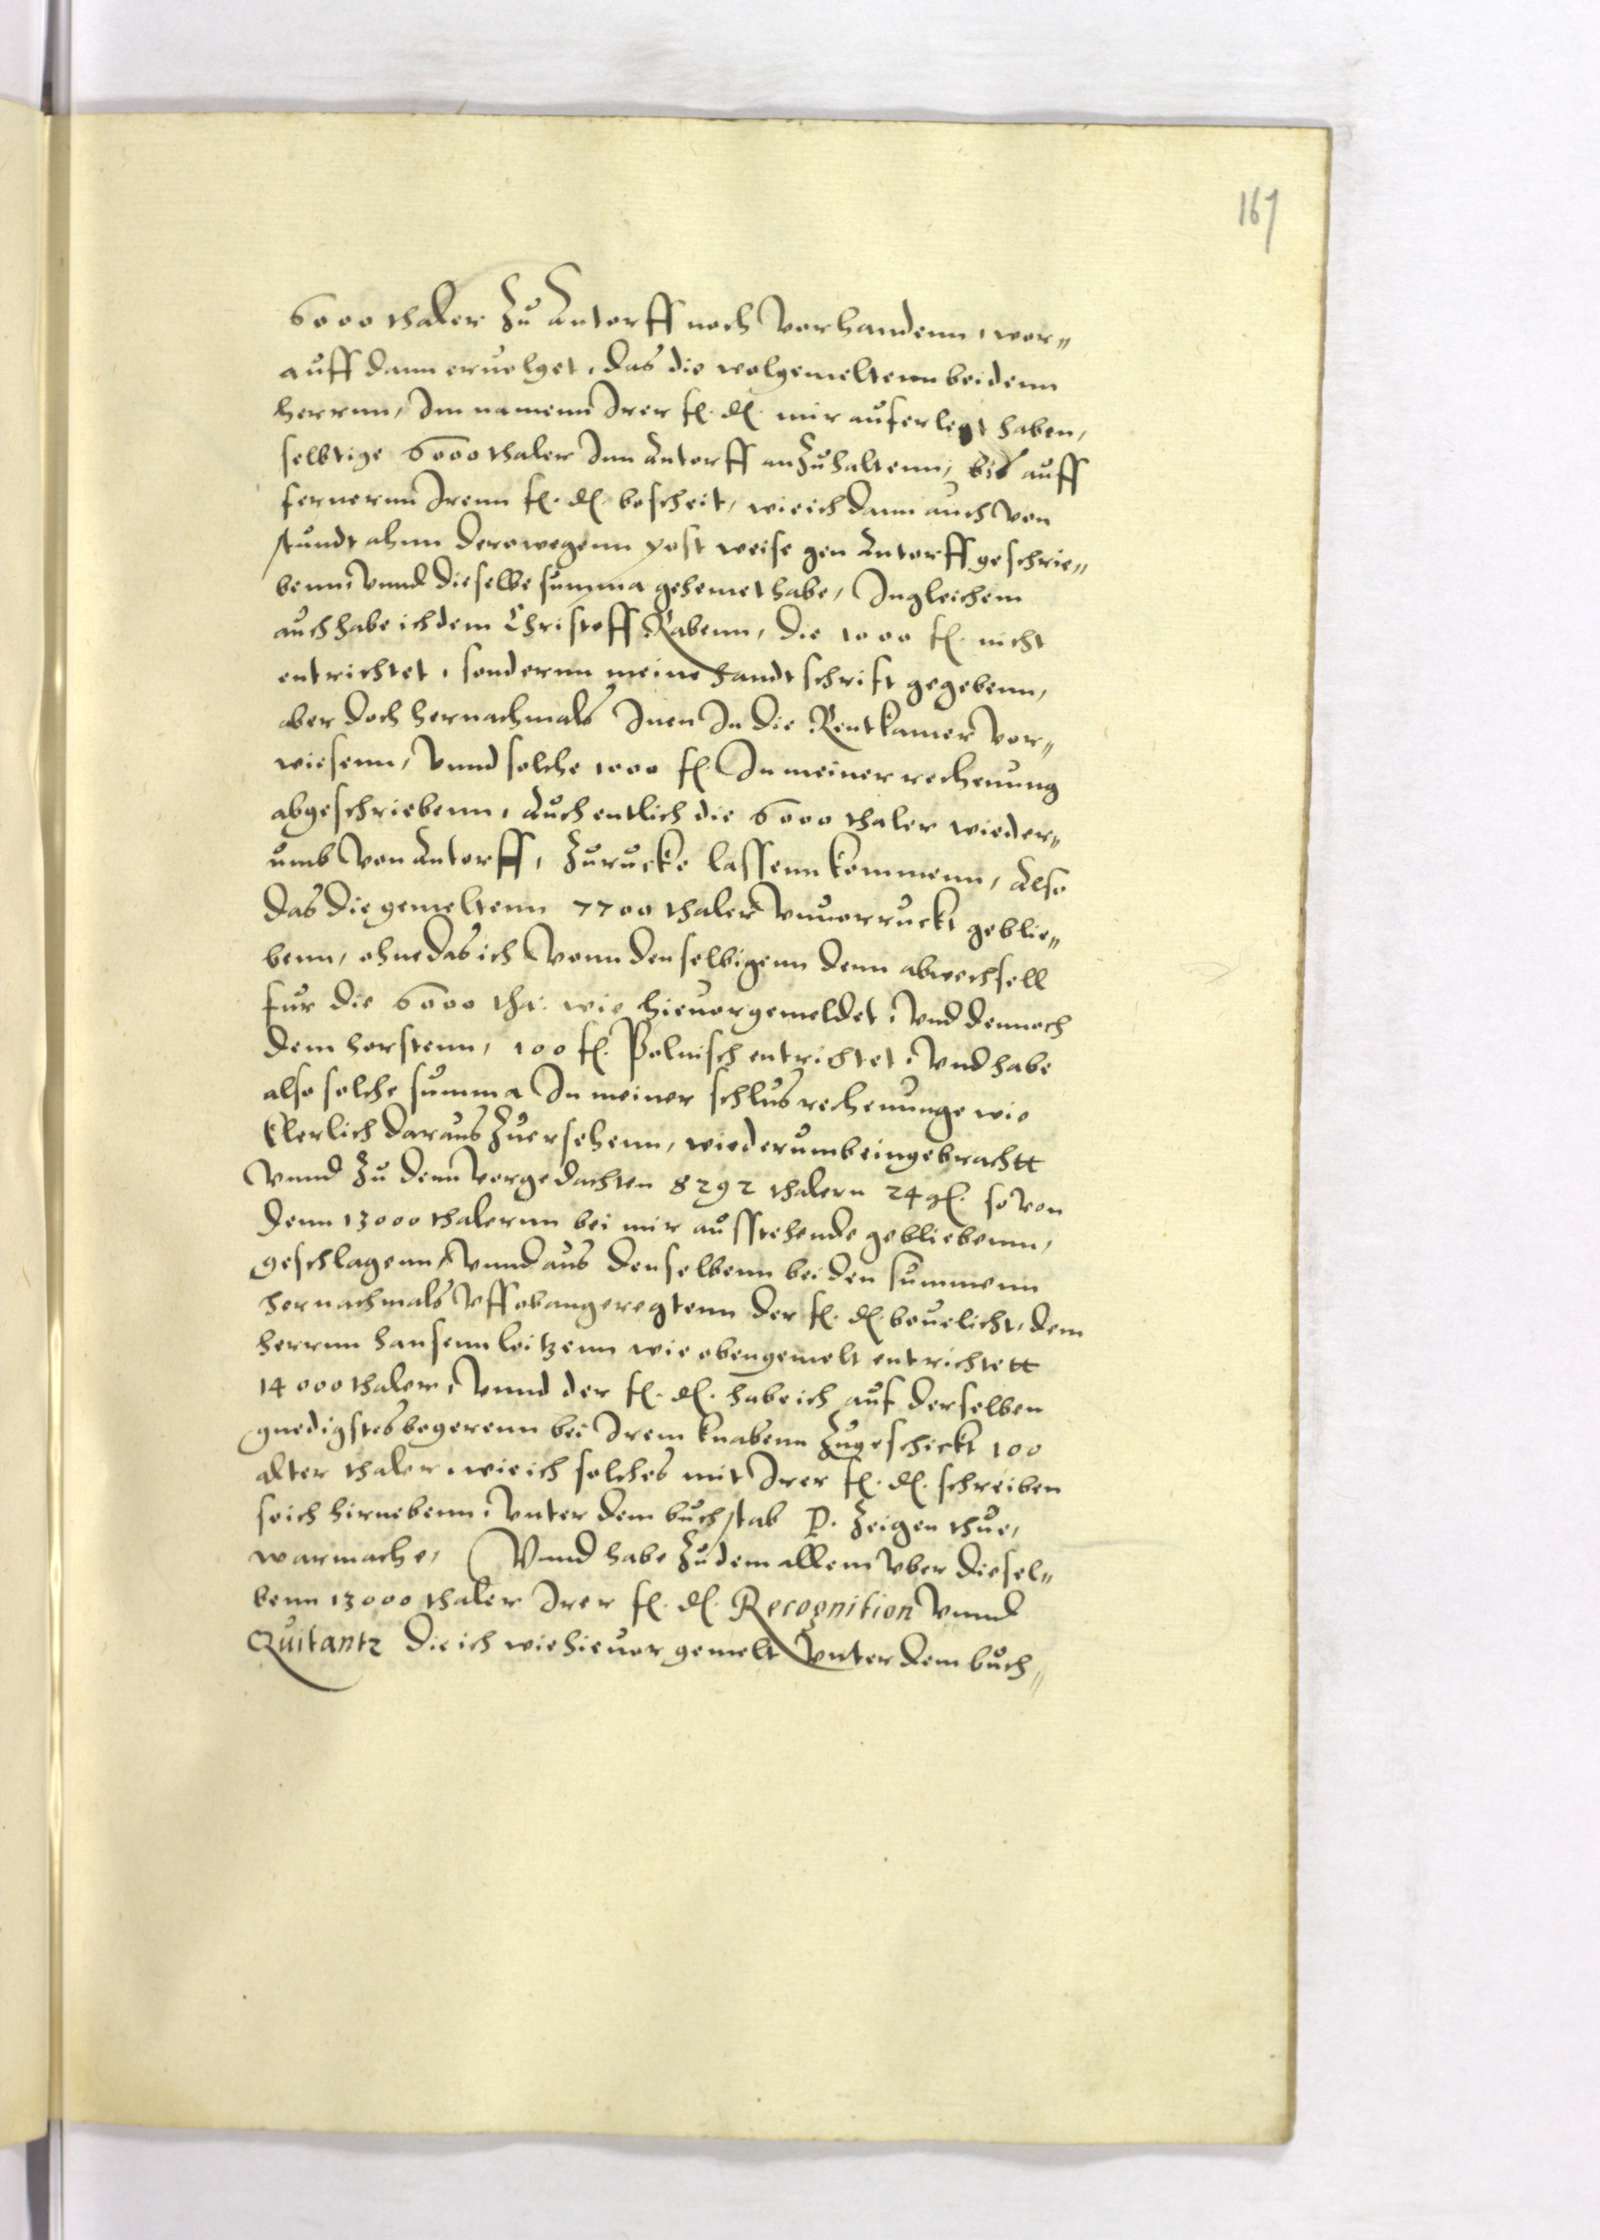 167
6000 thaler Zu Antorff noch vorhandenn, wor„
auff dann eruolget, das die wolgemeltenn beidenn
herrnn, Im namenn Irer f. d. mir auferlegt haben,
selbtige 6000 thaler Inn Antorff anZuhaltenn, bis auff
fernernn Irenn f. d. bescheit, wie ich dann auch von
stundt ahnn derowegenn post weise gen Antorff geschrie„
benn, vnnd dieselbe summa gehemet habe, Ingleichem
auch habe ich dem Christoff Rabenn, die 1000 fl. nicht
entrichtet, sondernn meine handtschrift gegebenn,
aber doch hernachmals Inen In die Rentkamer vor„
wiesenn, vnnd solche 1000 fl. In meiner rechenung
abgeschriebenn, Auch entlich die 6000 thaler wieder„
umb von Antorff, Zurucke lassenn kommenn, Also
das die gemeltenn 7700 thaler vnuorruckt geblie„
benn, ohne das ich vonn denselbigenn denn abwechsell
fur die 6000 tha: wie hieuorgemeldet, vnd dennoch
dem horstenn, 100 fl. Polnisch entrichtet, vnd habe
also solche summa In meiner schlus rechenunge wie
klerlich daraus Zuersehenn, wiederumb eingebrachtt
vnnd Zu denn vorgedachten 8292 thalern 24 gl. so von
denn 13000 thalernn bei mir ausstehende gebliebenn,
geschlagenn, vnnd aus denselbenn beiden summenn
hernachmals vff obangeregtenn der f. d. beuelicht, dem
herrnn hansenn loitzenn wie obengemelt entrichtett
14000 thaler, vnnd der f. d. habe ich auf derselben
gnedigstes begerenn bei Irem knabenn Zugeschickt 100
alter thaler, wie ich solches mit Irer f. d. schreiben
so ich hirnebenn, vnter dem buchstab P. Zeigen thue,
warmache, Vnnd habe Zudem allem vber diesel„
benn 13000 thaler Irer f. d. Recognition vnnd
Quitantz die ich wie hieuor gemelt vnter dem buch„